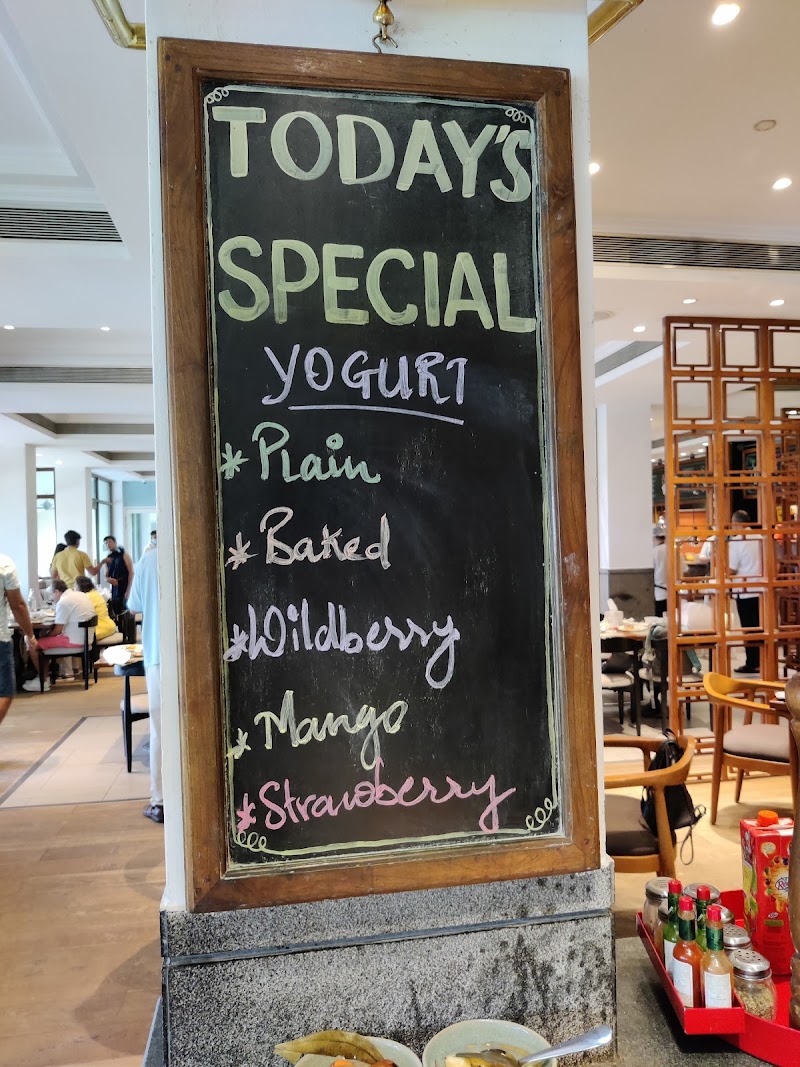 TODAY'S
SPECIAL
YOGURT
* Plain
* Baked
* Wildberry
* Mango
* Strawberry